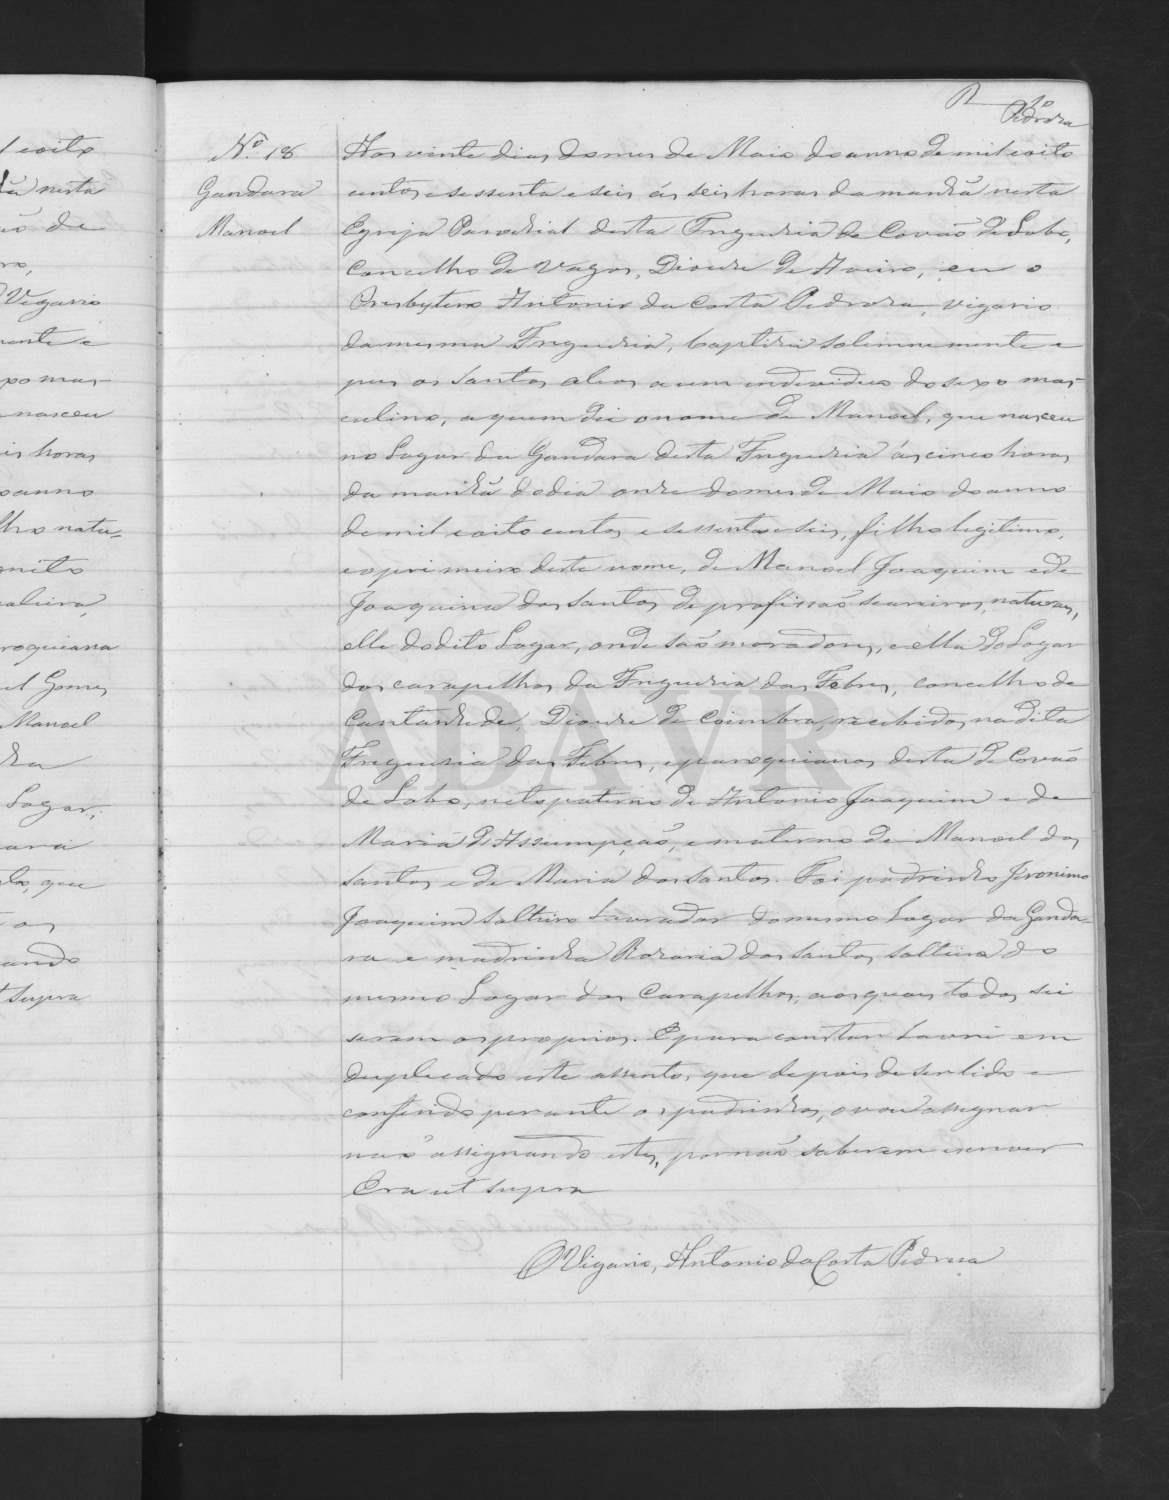 l e oito
nesta
ão de
ro,
Vigario
mente e
xo mas-
nasceu
is horas
do anno
lho natu-
neto
roquiana
el Gomes
Manoel
Lugar,
que
os
ando
t supra
R 10
Pedroza
N.º 18
Gandara
Manoel
Aos vinte dias do mes de Maio do anno de mil e oito
centos e sessenta e seis ás seis horas da manhã nesta
Egreja Parochial desta Freguezia de Covão de Lobo,
Concelho de Vagos, Diocese de Aveiro, eu o
Presbytero Antonio da Costa Pedroza, vigario
da mesma Freguezia, baptizei solemnemente e
pus os santos oleos a um individuo do sexo mas-
culino, a quem dei o nome de Manoel, que nasceu
no Lugar da Gandara desta Freguezia ás cinco horas
da manhã do dia onze do mes de Maio do anno
de mil e oito centos e sessenta e seis, filho legitimo,
e o primeiro deste nome, de Manoel Joaquim e de
Joaquina dos Santos de profissão seareiros, naturaes,
elle do dito Lugar, onde são moradores, e ella do Lugar
dos carapelhos da Freguezia das Febres, concelho de
Cantanhede, Diocese de Coimbra, recebidos na dita
Freguezia das Febres, e paroquianos desta de Covão
de Lobo, neto paterno de Antonio Joaquim e de
Maria d'Assumpção, e materno de Manoel dos
Santos e de Maria dos Santos. Foi padrinho Jeronimo
Joaquim solteiro Lavrador do mesmo Lugar da Ganda-
ra e madrinha Rozaria dos Santos solteira do
mesmo Lugar dos Carapelhos, aos quaes todos sei
serem os proprios. E para constar Lavrei em
duplicado este assento, que depois de ser lido e
conferido perante os padrinhos, o vou assignar
não assignando estes, por não saberem escrever
Era ut supra
O Vigario, Antonio da Costa Pedroza
ADAVR